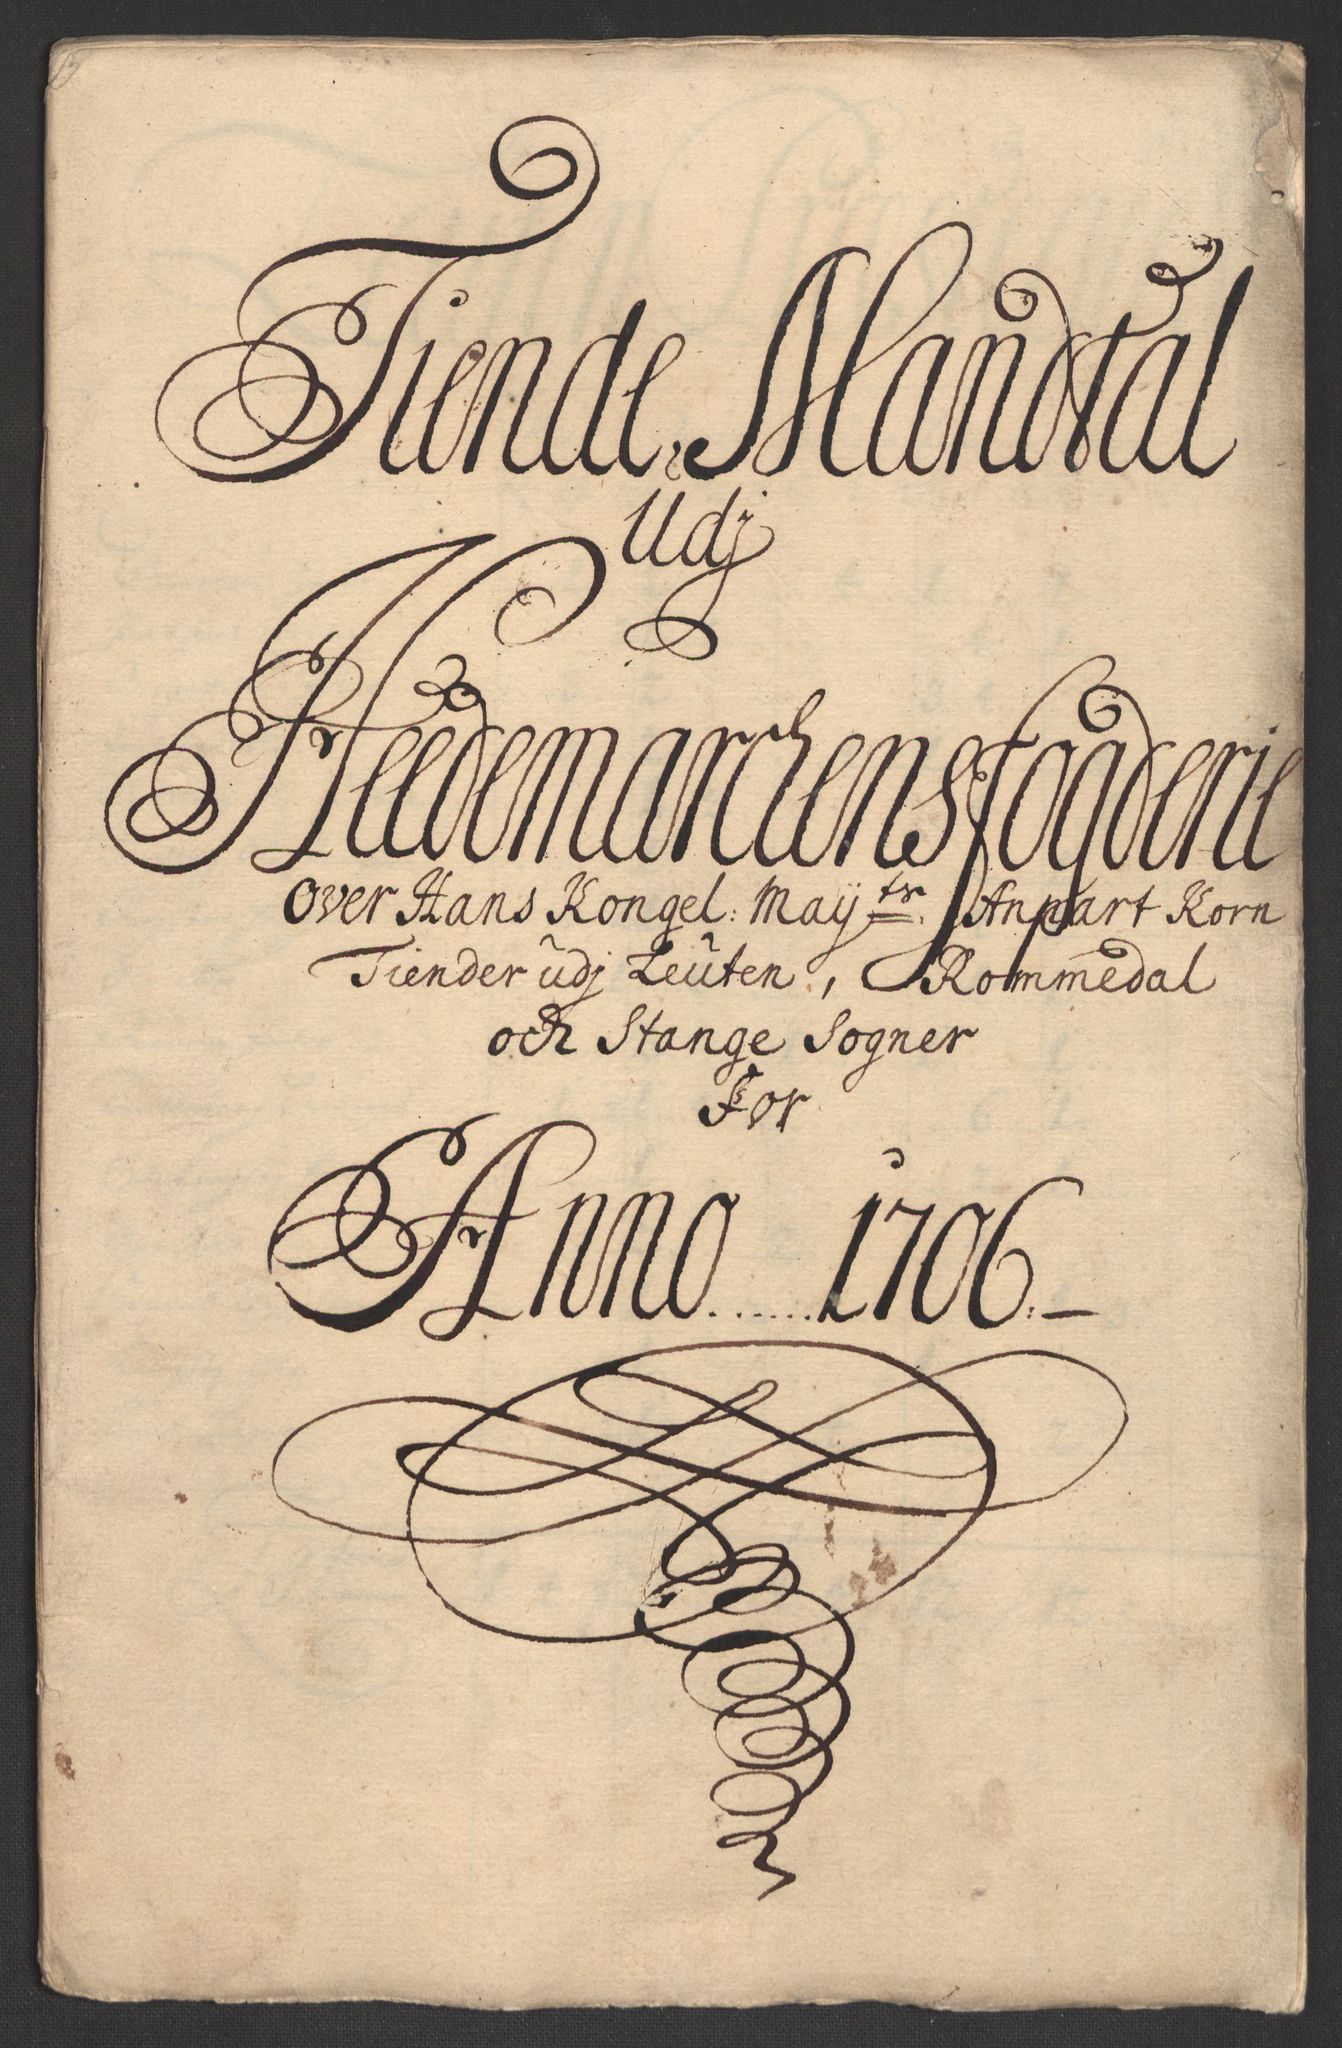 Tiende Mandtal
Udj
Heedemarchens fogderie
over Hans Kongel: Maÿtz. Anpart Korn
Tiender udj Leuten, Rommedal
och Stange Sogner
For
Anno ...... 1706.—